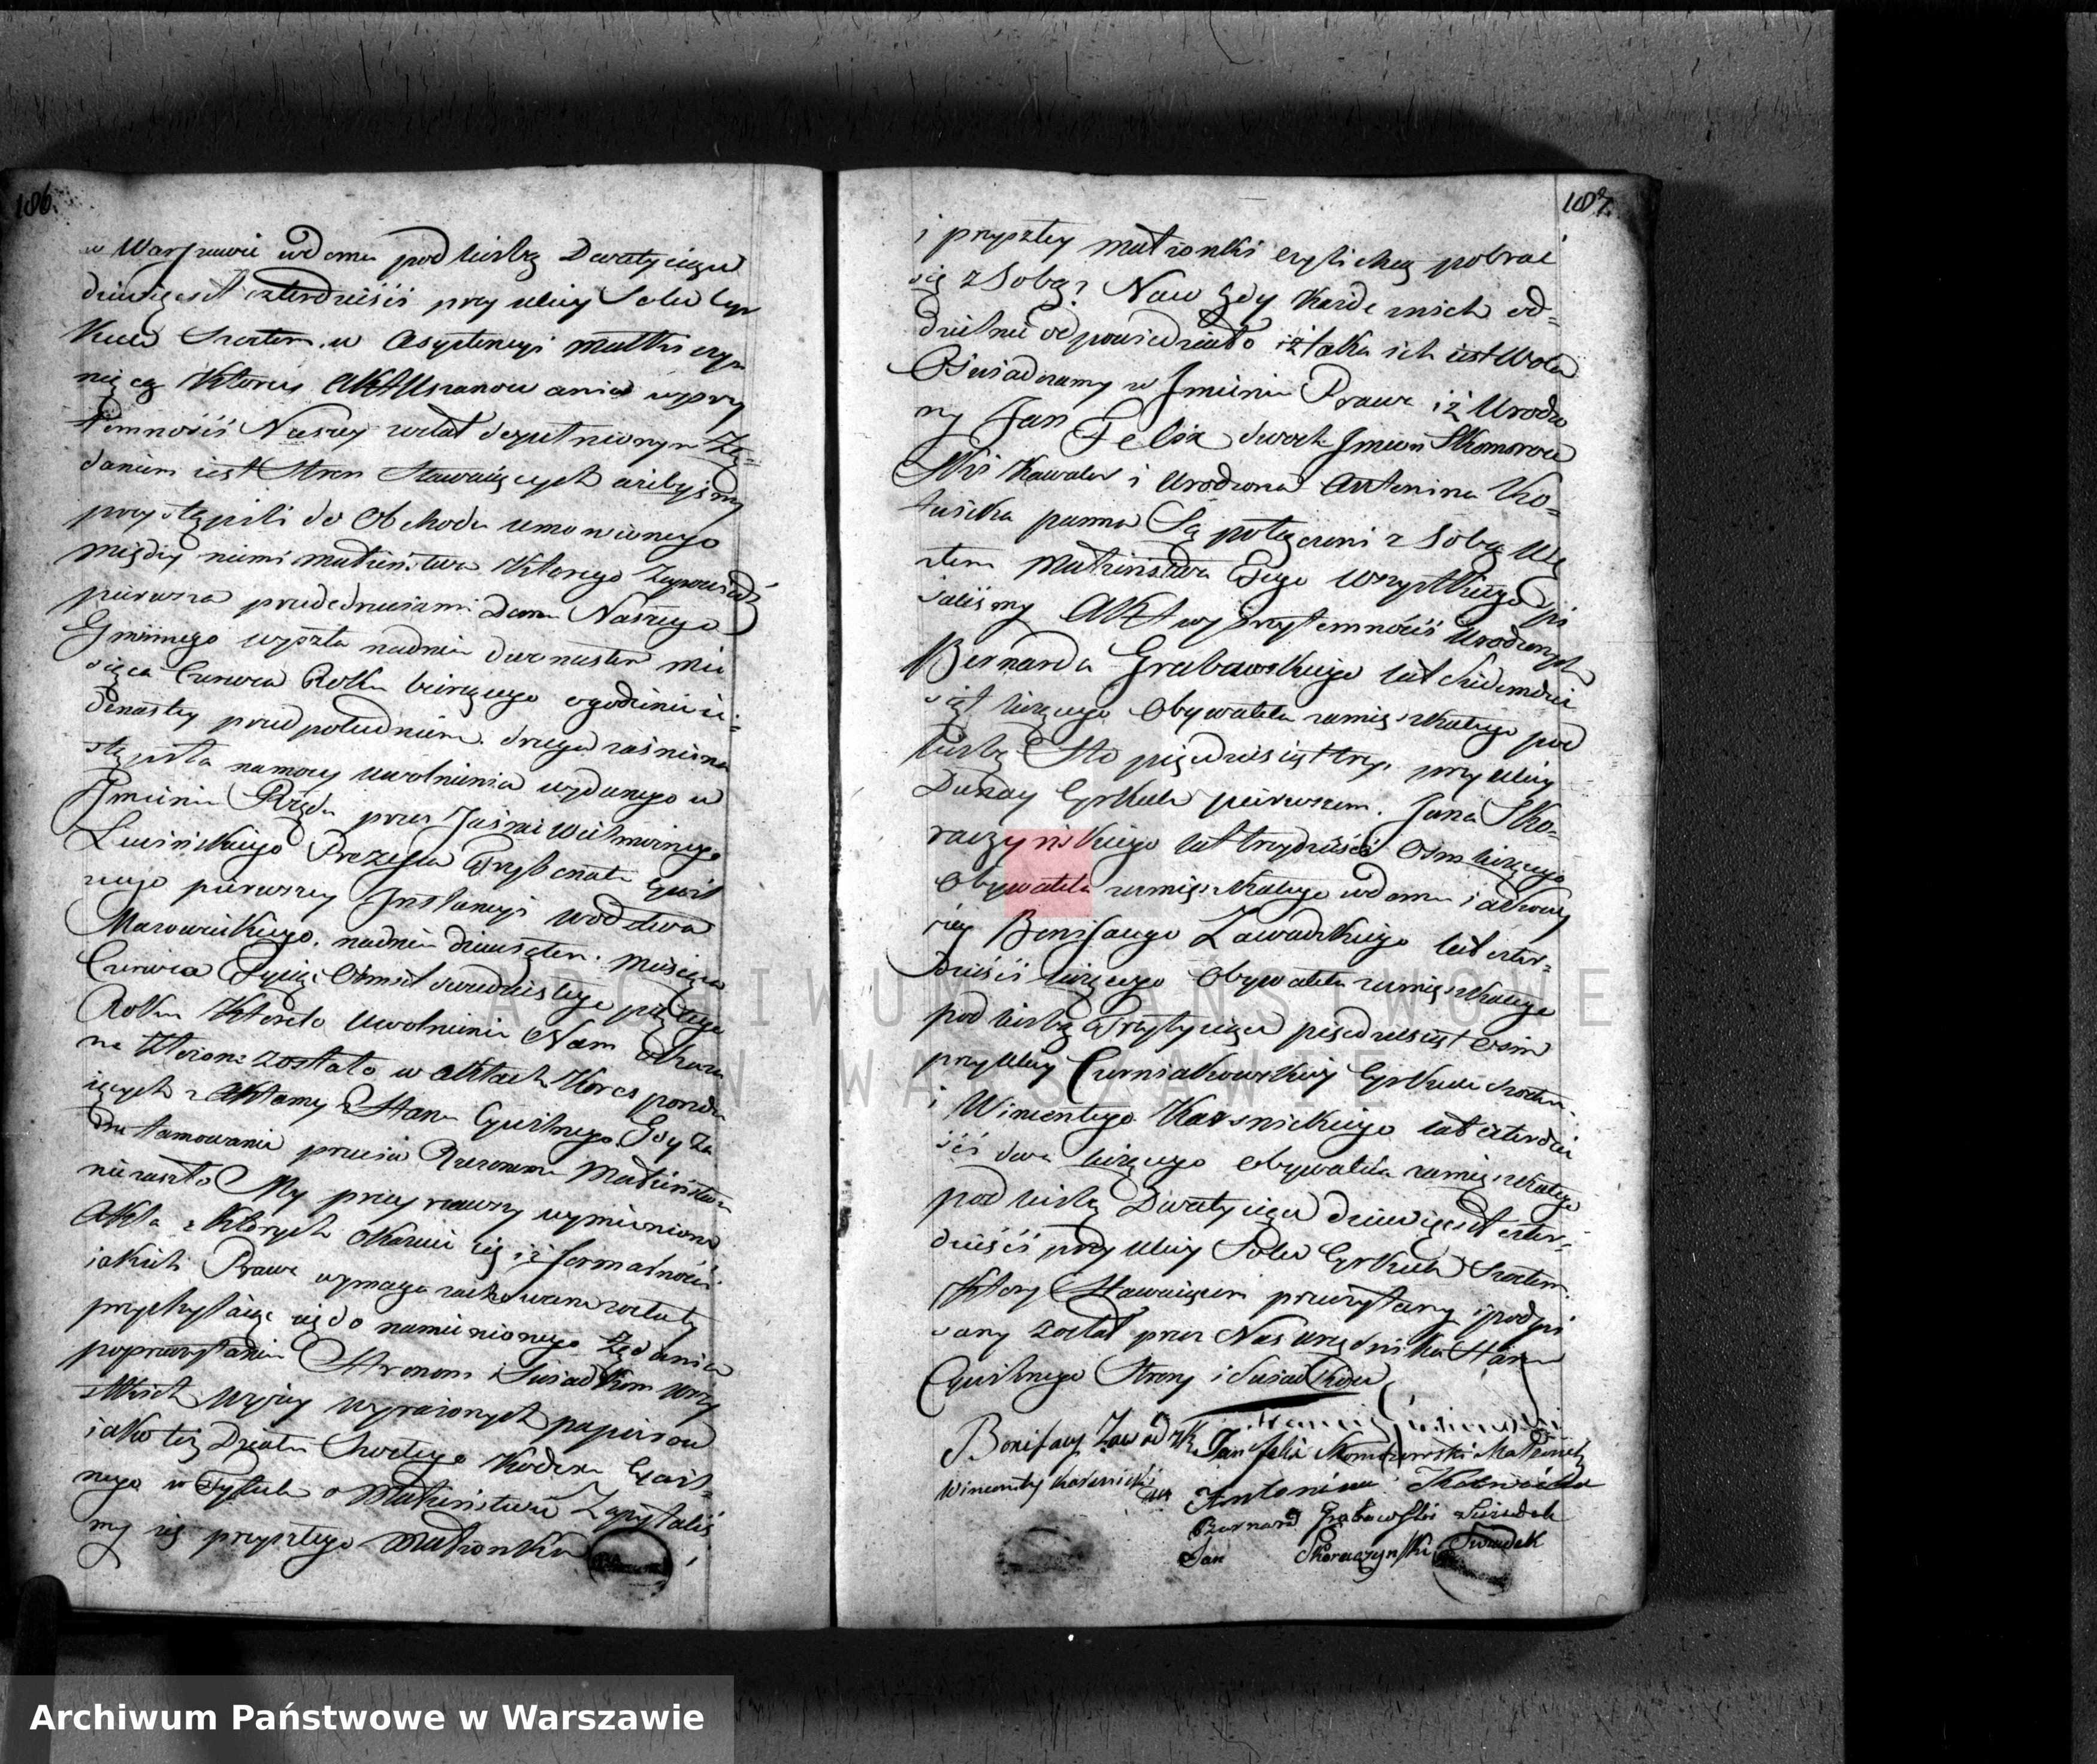 106.
w Warszawie w domu pod liczbą Dwa tysiące
dziewięset czterdzieści przy ulicy Solec Cyr
kule Szostem. w Asystencyi Matki czy
niącą którey Akt Uszanowania w przy
tomności Naszey został dopełnionym Żą=
daniem iest Stron Stawaiących ażebyśmy
przystąpili do Obchodu umowionego
między niemi małżeństwa którego Zapowiedź
pierwsza przededrzwiami Domu Naszego
Gminnego wyszła na dniu dwunastem mie
siąca Czerwca Roku bieżącego o godzinie ie=
denastey przed południem. druga zaś niena
stąpiła na mocy uwolnienia wydanego w
Imieniu Rządu przez Jaśnie Wielmożnego
Prezesa Trybunału Cywil
nego pierwszey Instancyi Wodztwa
Mazowieckiego. na dniu dziewiątem. Miesiąca
Czerwca Tysiąc Ośmset dwudziestego piątego
Roku któreto uwolnienie Nam okaza
ne złożone zostało w aktach Koresponda
iących z Aktamy Stanu Cywilnego. Gdy Za
dne tamowanie przeciw Rzeczonemu Małżeństwu
nie zaszło My przeyrzawszy wymienione
Akta z których okazuie się iż formalności
iakich Prawo wymaga zachowane zostały
przychylaiąc się do namienionego Żądania
po przeczytaniu Stronom i Świadkom wszy
stkich wyżey wyrażonych papierow
iako też Działu Szostego Kodexu Cywil=
nego w Tytule o Małżeństwie Zapytaliś
my się przyszłego Małżonka
107.
i przyszłey małżonki czyli chcą pobrać
się z Sobą? Naco gdy każde z nich od=
dzielnie odpowiedziało iż taka ich iest Wola
Oświadczamy w Imieniu Prawa iż Urodzo
ny Jan Felix dwoch Imion Skomorow
ski Kawaler i Urodzona Antonina Ko=
panna Są połączeni z Sobą Wę
złem Małżeństwa Czego wszystkiego spi
saliśmy Akt w przytomności Urodzonych
Bernarda Grabowskiego lat Siedemdzie
siąt liczącego Obywatela zamieszkałego pod
liczbą Sto piędziesiąt trzy. przy ulicy
Dunay Cyrkule pierwszem. Jana Sko=
raczyńskiego lat trzydzieści Ośm liczącego
Obywatela zamieszkałego w domu i ulicy
Bonifacego Zawadzkiego lat czter=
dzieści liczącego Obywatela zamieszkałego
pod liczbą Trzy tysiące piędziesiąt Ośm
przy ulicy Czerniakowskiey Cyrkule
i Wincentego Kaźmickiego lat czterdzie
ści dwa liczącego Obywatela zamieszkałego
pod liczbą Dwa tysiące dziewięset czter=
dzieści przy ulicy Solec Cyrkule Szostem.
ktory Stawaiącem przeczytany i podpi
sany został przez Nas urzędnika Stanu
Cywilnego Strony i Świadkow
Bonifacy Zawadzki Jan Felix Skomorowski Małżonek
Wincenty Antonina
Bernard Grabowski Świadek
Jan Skoraczyński Świadek
ARCHIWUM PAŃSTWOWE
W WARSZAWIE
Archiwum Państwowe w Warszawie